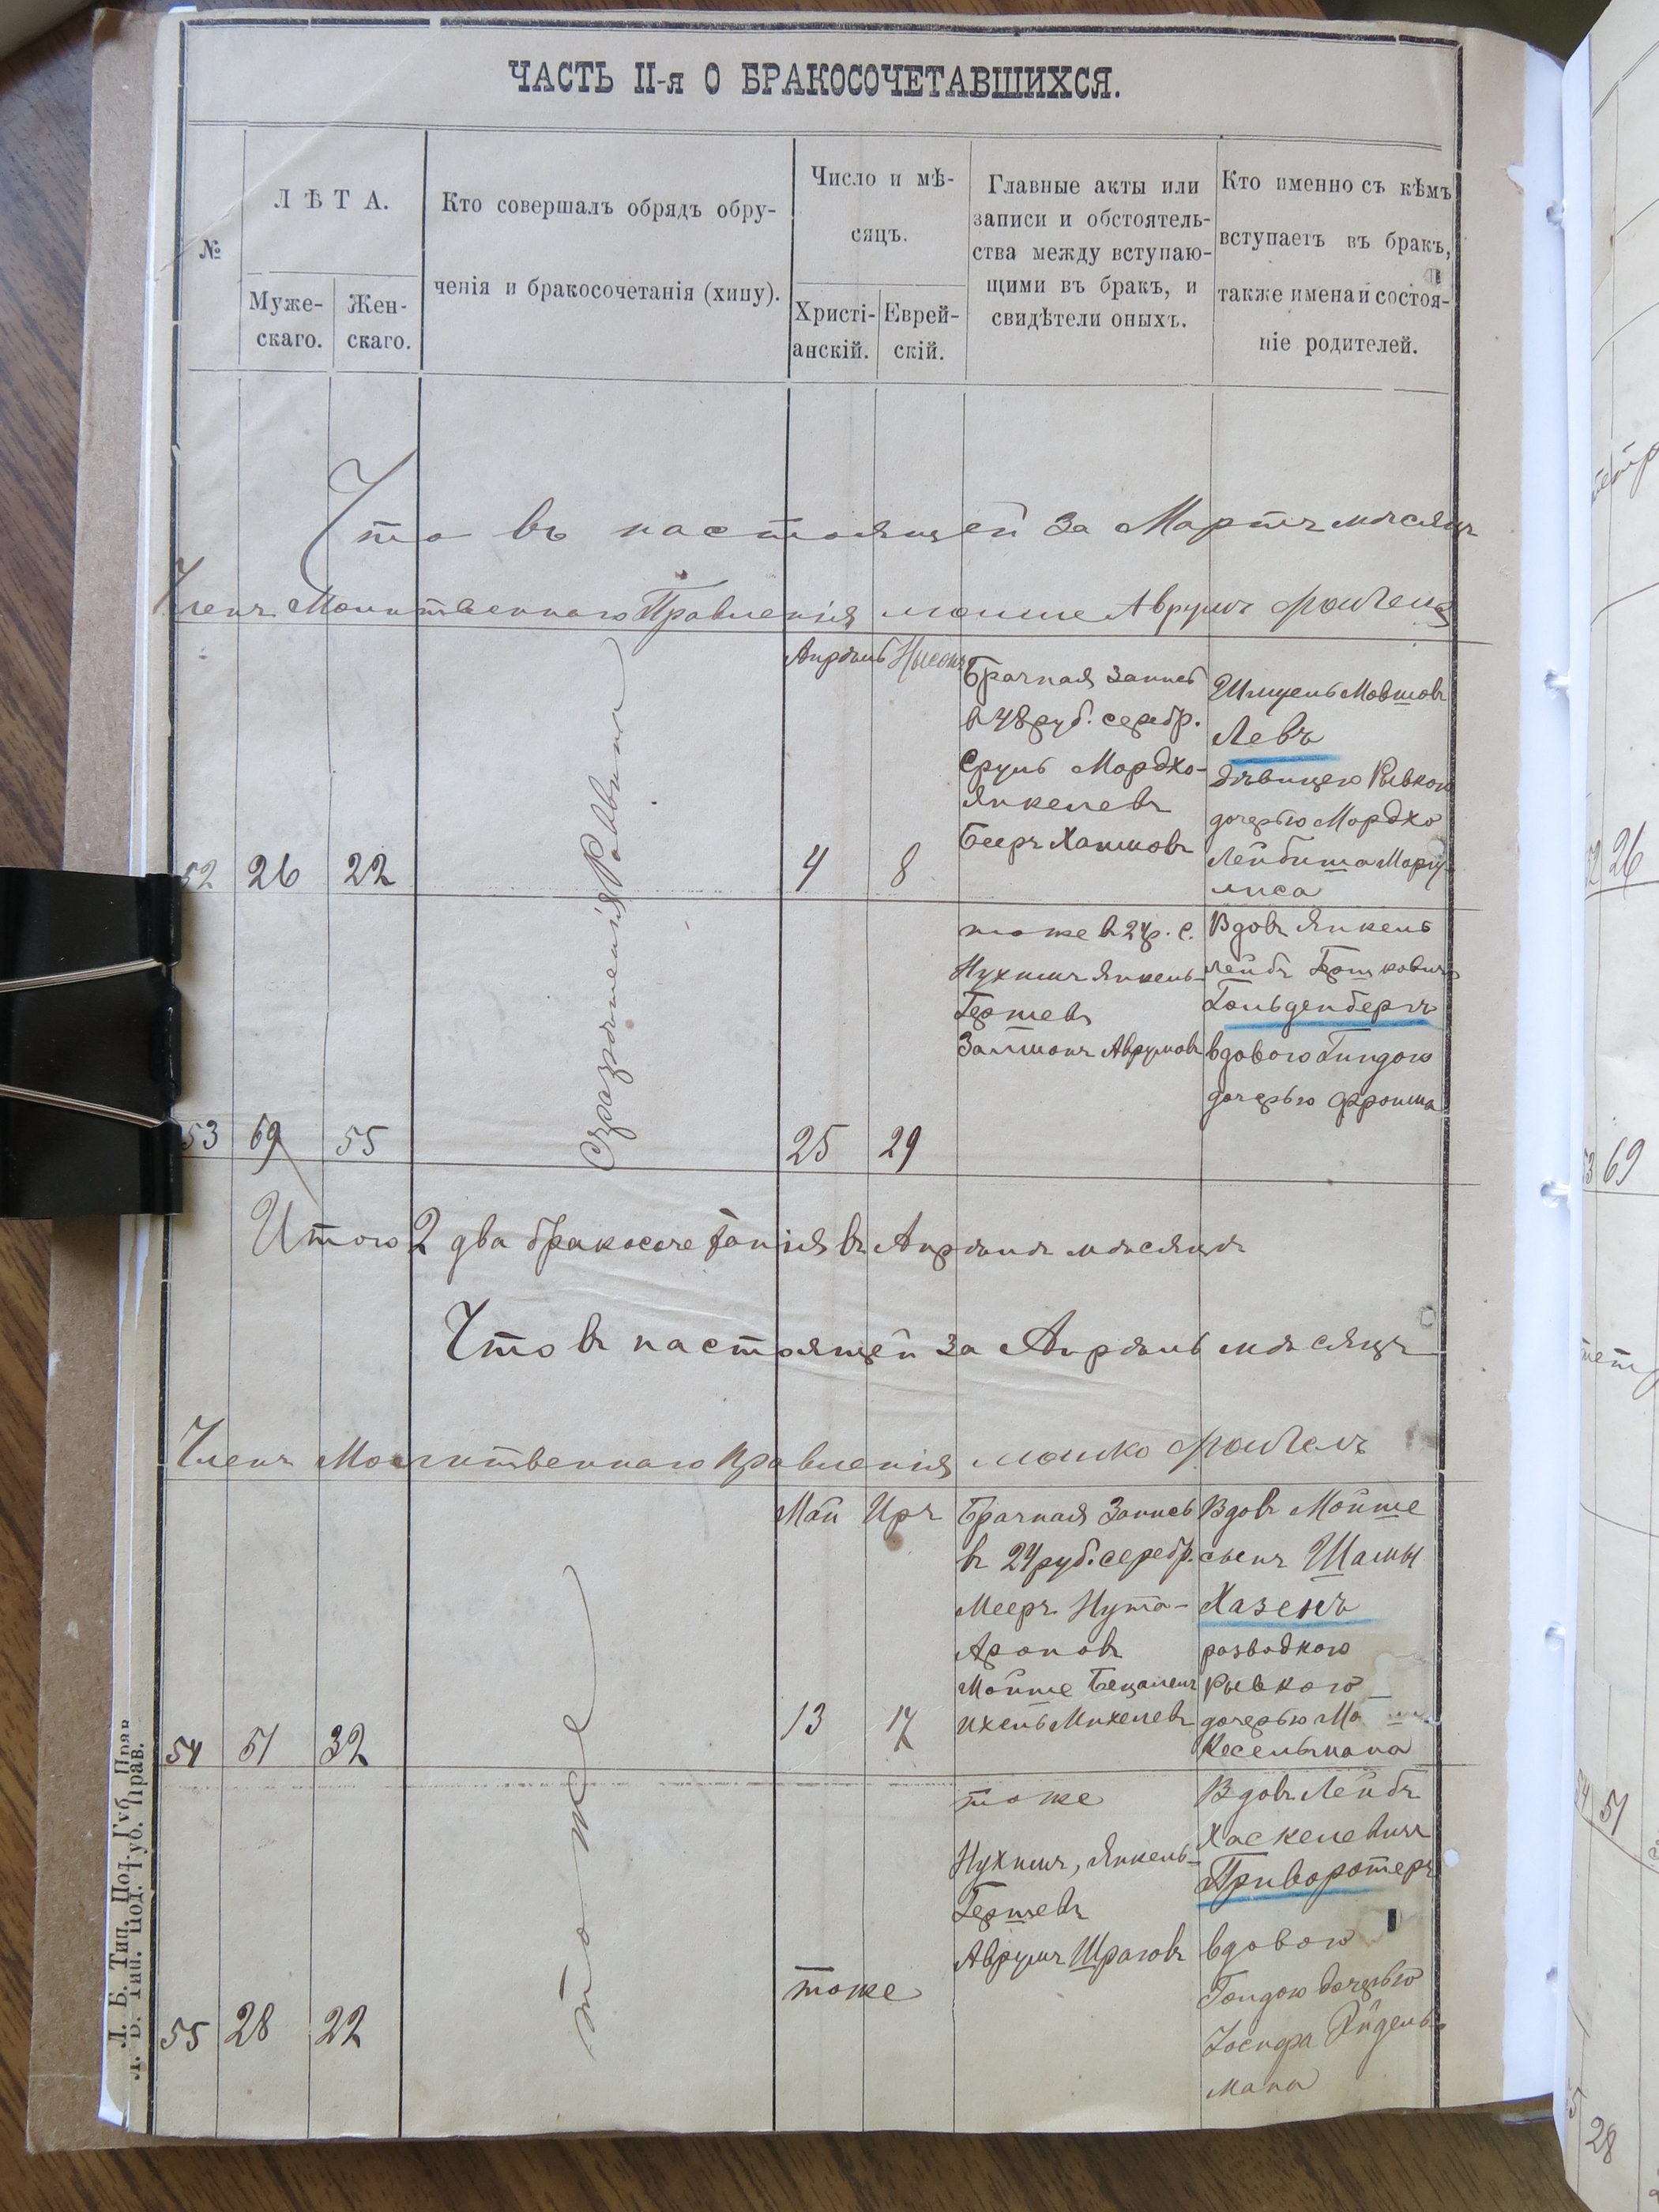 ЧАСТЬ II-я О БРАКОСОЧЕТАВШИХСЯ.
№
ЛѢТА.
Муже-
скаго.
Жен-
скаго.
Кто совершалъ обрядъ обру-
ченія и бракосочетанія (хипу).
Число и мѣ-
сяцъ.
Христі-
анскій.
Еврей-
скій.
Главные акты или
записи и обстоятель-
ства между вступаю-
щими въ бракъ, и
свидѣтели оныхъ.
Кто именно съ кѣмъ
вступаетъ въ бракъ,
также имена и состоя-
ніе родителей.
Что въ настоящей за Мартъ мѣсяцъ
Членъ Молитвеннаго Правленія Мошке Аврумъ
52
26
22
Апрѣль
4
Нисонъ
8
Брачная запись
в 48 руб. серебр.
Сруль Мордхо-
Янкелевъ
Бееръ Хаимовъ
Шмуель Мовшовъ
Левъ
дѣвицею Рывкою
дочерью Мордхо
Лейбиша Маргу-
лиса
53
69
55
25
29
тоже в 24 р. с.
Нухимъ Янкель-
Гершевъ
Залмонъ Аврумовъ
Вдовъ Янкель
Лейбъ Бошковичъ
Гольденбергъ
вдовою Гиндою
дочерью Фроима
Итого 2 два бракосочетанія въ Апрѣлѣ мѣсяцѣ
Что въ настоящей за Апрѣль мѣсяцъ
Членъ Молитвеннаго Правленія Мошко
54
51
32
тоже
Май
13
Иръ
17
Брачная Запись
въ 24 руб. серебр.
Мееръ Нута-
Ароновъ
Мойше Бецалель
Ихель Михелевъ
Вдовъ Мойше
сынъ Шамы
Хазенъ
разводкою
Рывкою
дочерью Мо
Кесельмана
55
28
22
тоже
тоже
Нухимъ, Янкель-
Гершевъ
Аврумъ Шраговъ
Вдовъ Лейбъ
Хаскелевичъ
Приворотеръ
вдовою
Гендою дочерью
Іосифа Айдель-
мана
Л. Б. Тип. Под. Губ. Прав.
52
26
53
69
54
51
55
28